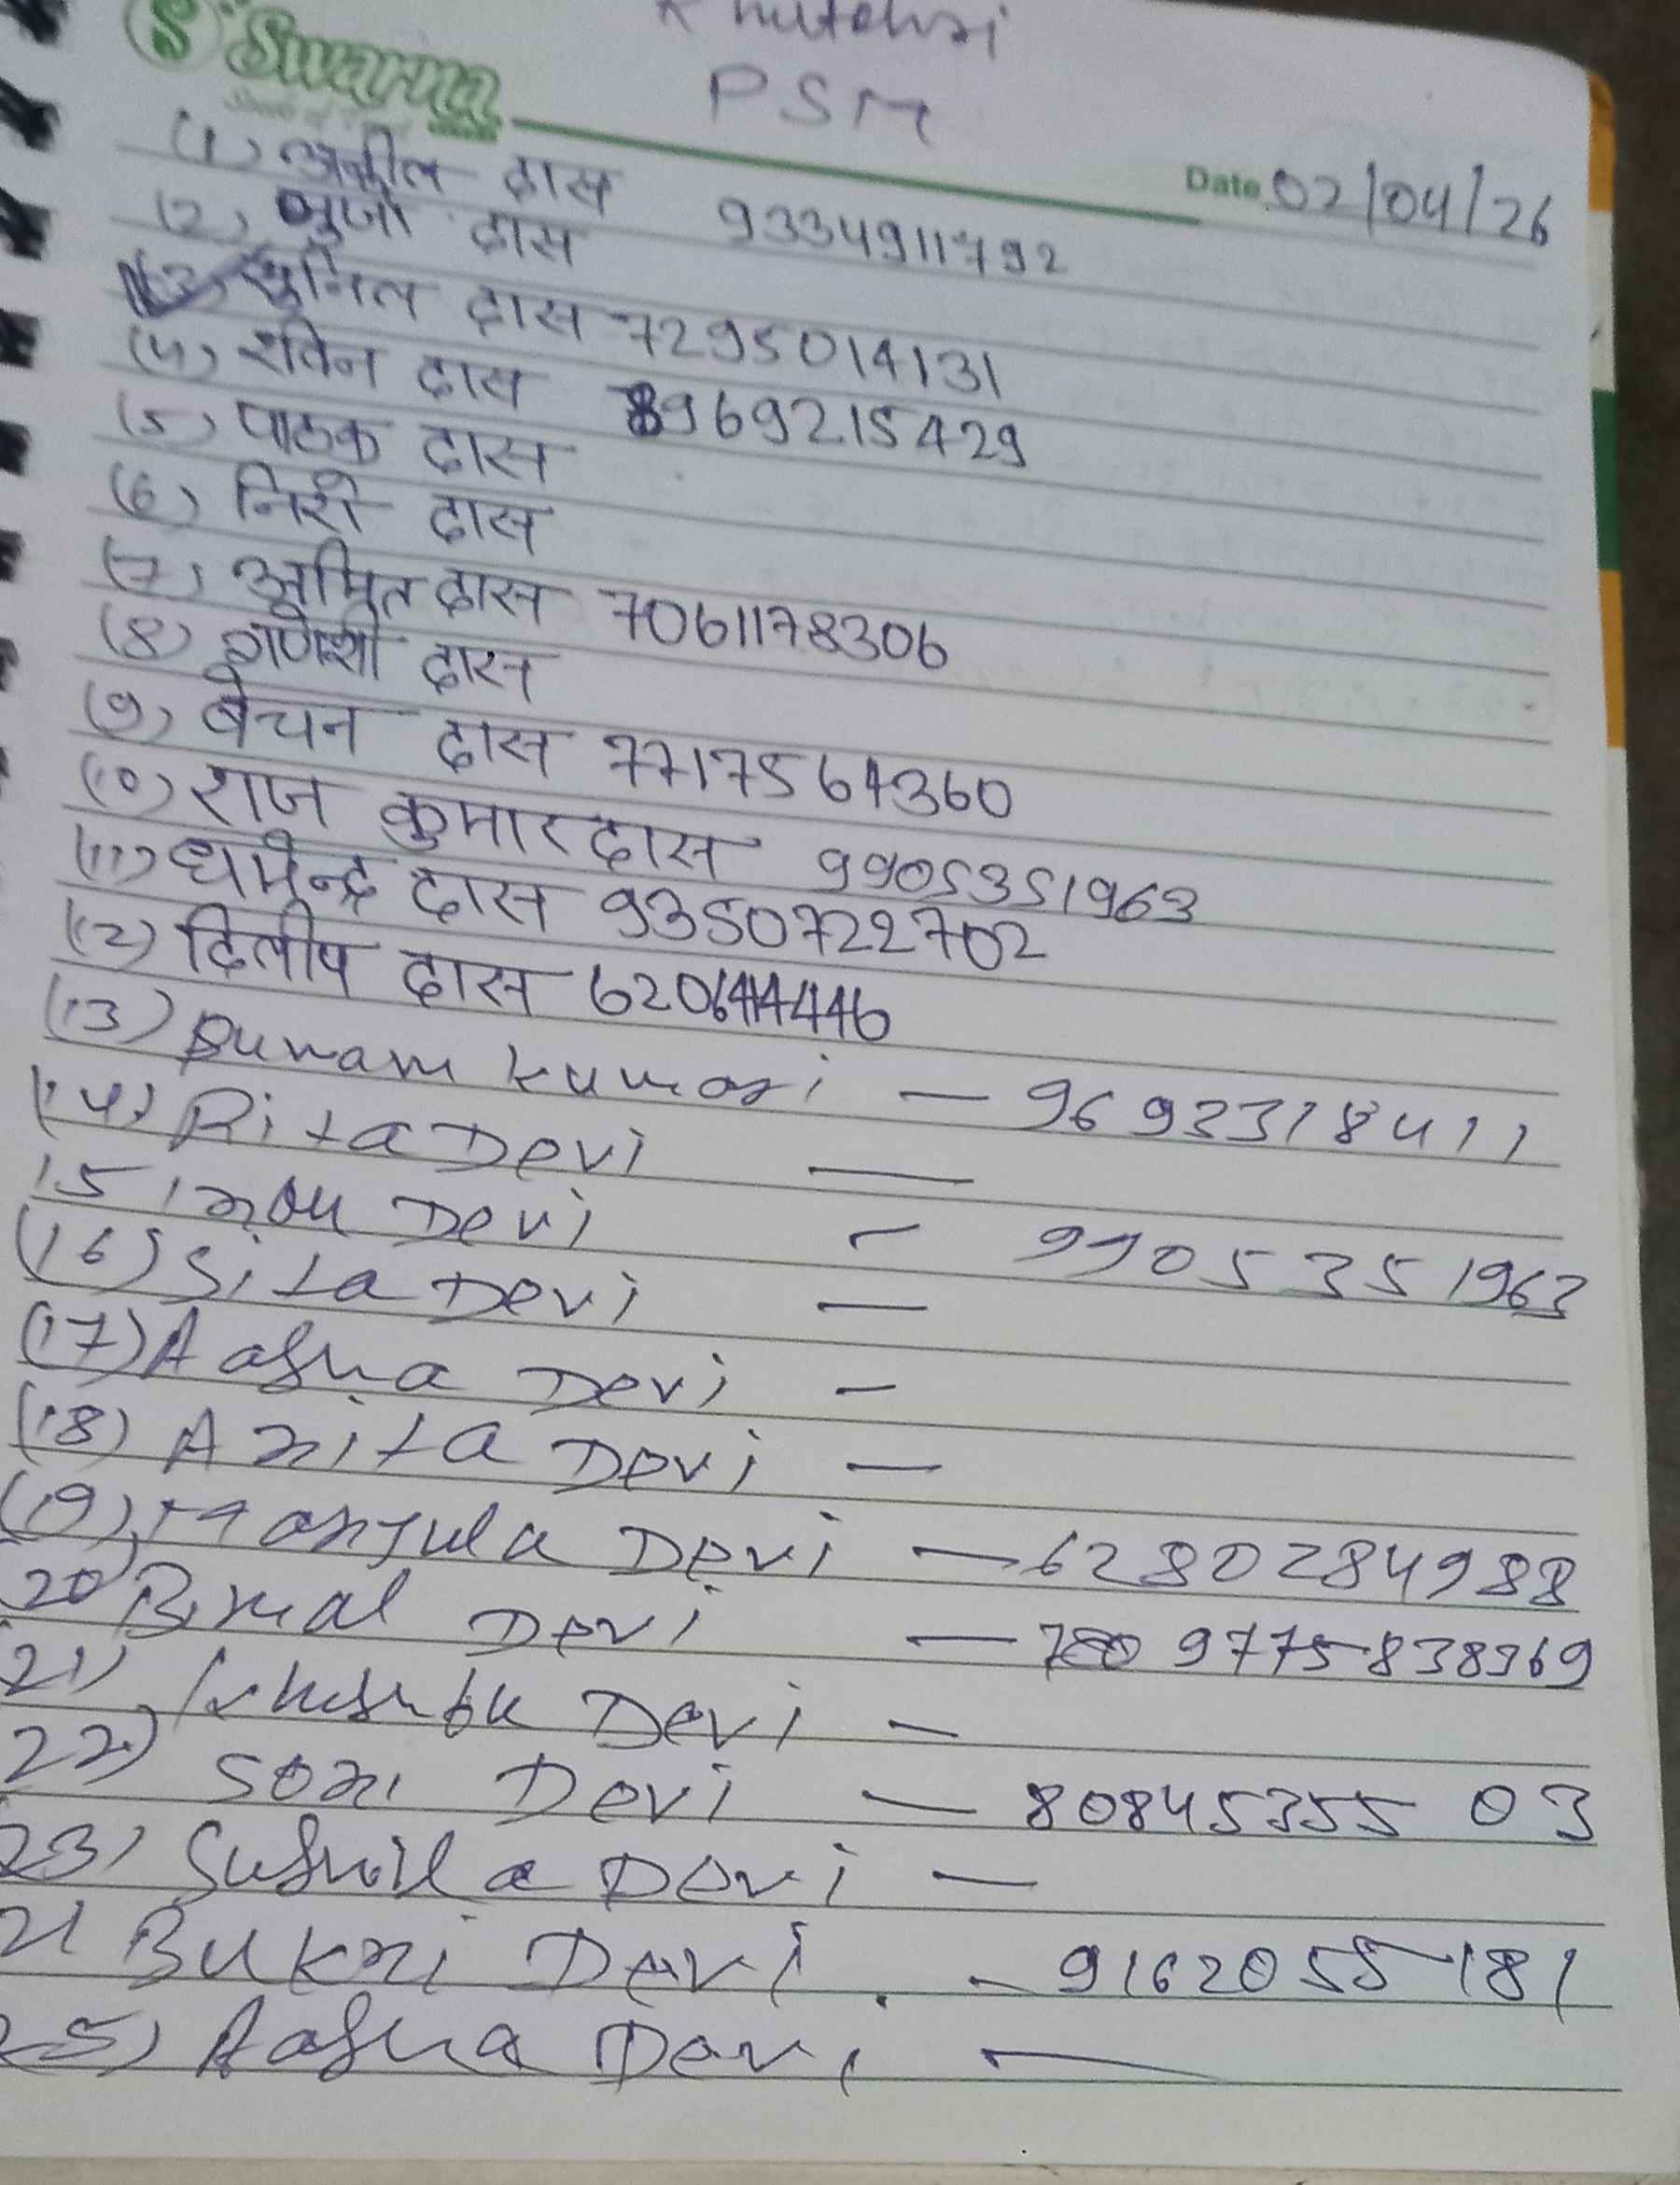 PSM
Swarna
Date 02/04/26
(1) अकील दास
(2) भुजो दास 9334911792
(3) सुनिल दास 7295014131
(4) रविन दास 8969215429
(5) पाठक दास
(6) निरो दास
(7) अमित दास 7061178306
(8) गणेशी दास
(9) बेचन दास 7717564360
(10) राज कुमार दास 9905351963
(11) धर्मेन्द्र दास 9350722702
(12) दिलीप दास
(13) Punam kumari — 9693318411
(14) Rita Devi —
15 Devi - 9905351963
(16) Sita Devi —
(17) Aasha Devi -
(18) Anita Devi —
(19) Manjula Devi — 6280284988
20) Bimal Devi — 9775838369
21) Khushbu Devi —
22) Soni Devi — 8084535503
23) Sushila Devi —
Devi - 9162055181
25) Aasha Devi —